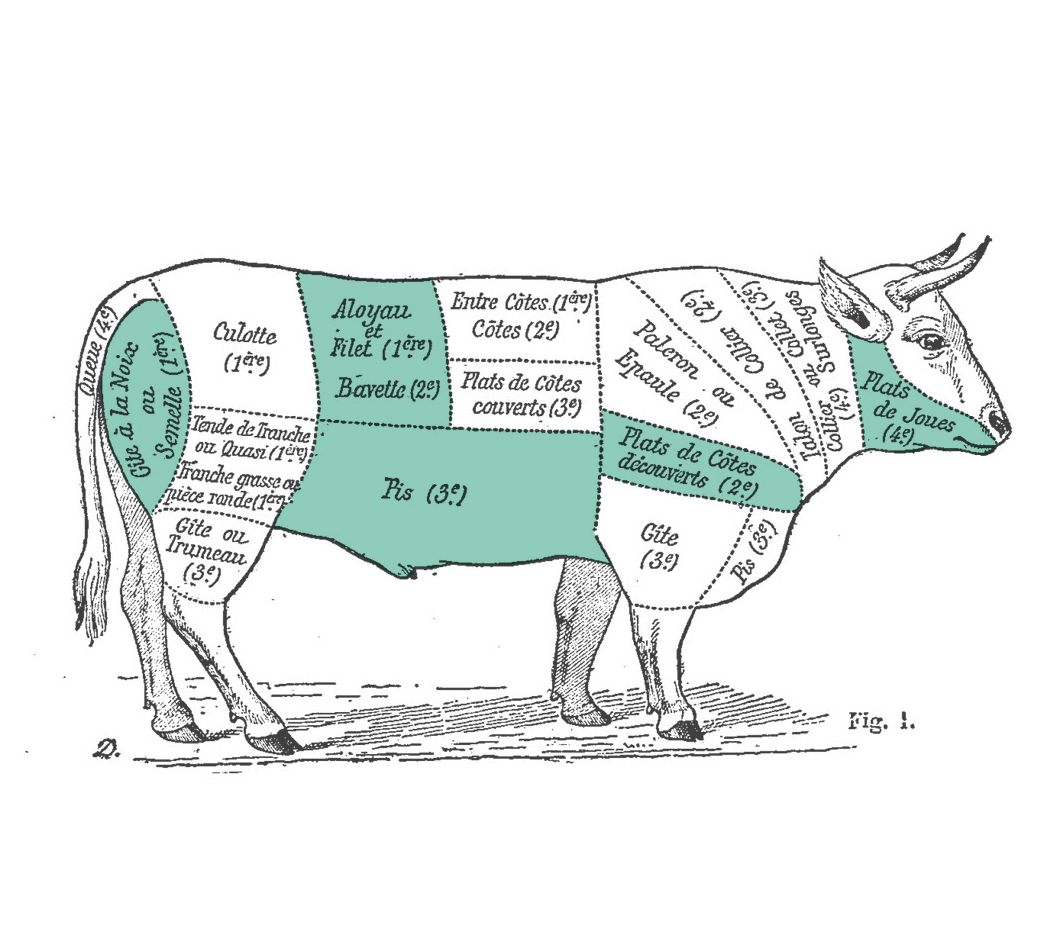 Queue (4e)
Gîte à la Noix
ou
Semelle (1ère)
Culotte
(1ère)
Tende de Tranche
ou Quasi (1ère)
Tranche grasse ou
pièce ronde (1ère)
Gîte ou
Trumeau
(3e)
Aloyau
et
Filet (1ère)
Bavette (2e)
Entre Côtes (1ère)
Côtes (2e)
Plats de Côtes
couverts (3e)
Pis (3e)
Paleron ou
Epaule (2e)
Talon de Collier (2e)
Collier ou Collet (3e)
Surlonges (4e)
Plats de Côtes
découverts (2e)
Gîte
(3e)
Pis (3e)
Plats
de Joues
(4e)
D.
Fig. 1.